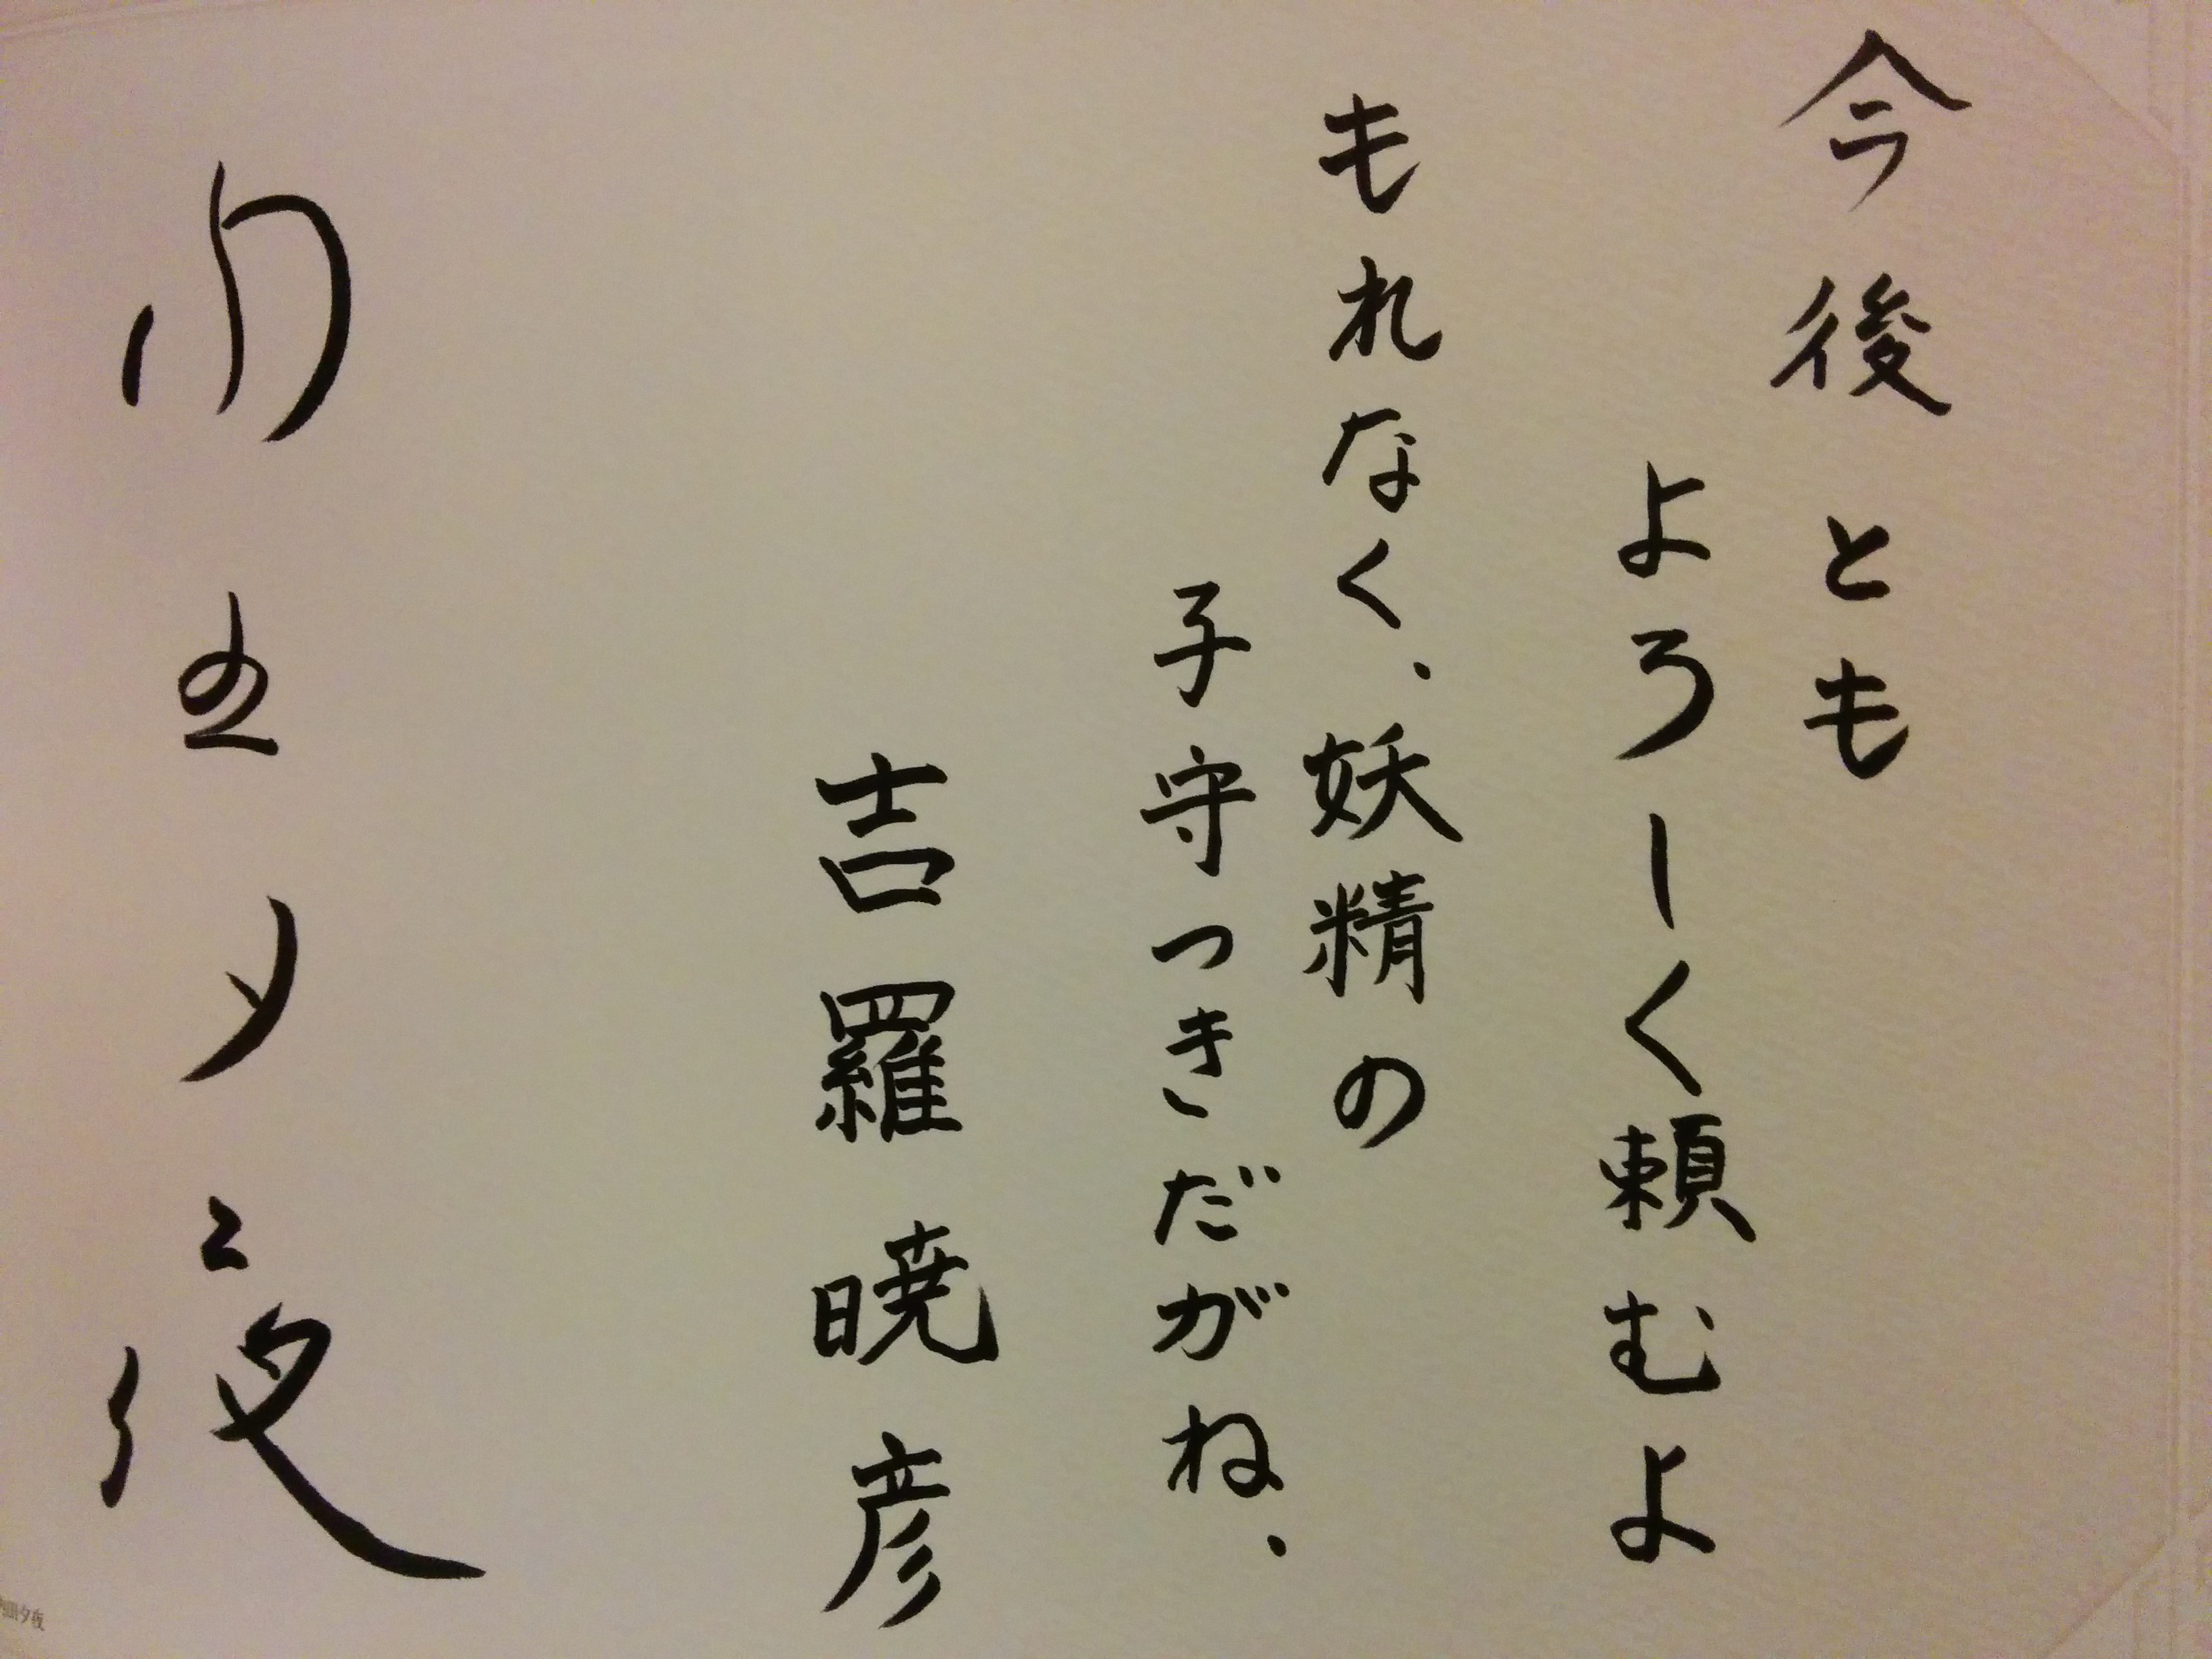 今後とも
よろしく頼むよ
もれなく、妖精の
子守つきだがね、
吉羅暁彦
内田夕夜
内田夕夜